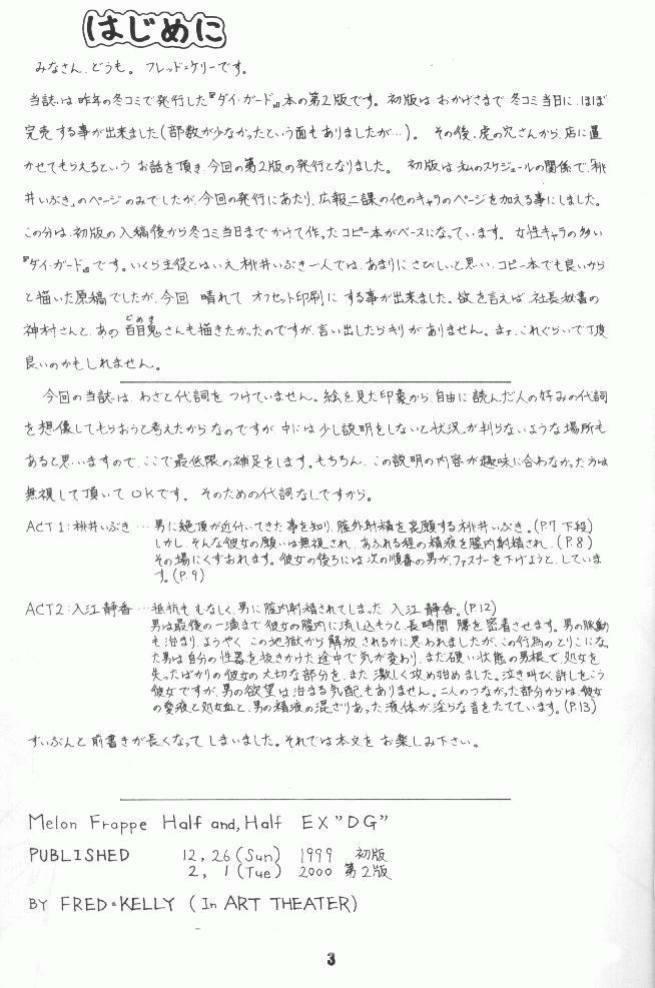 はじめに
みなさん、どうも。フレッド=ケリーです。
当誌は昨年の冬コミで発行した『ダイ・ガード』本の第2版です。初版はおかげさまで冬コミ当日に、ほぼ
完売する事が出来ました(部数が少なかったという面もありましたが…)。その後、虎の穴さんから、店に置
かせてもらえるというお話を頂き今回の第2版の発行となりました。初版は私のスケジュールの関係で、「桃
井いぶき」のページのみでしたが、今回の発行にあたり、広報二課の他のキャラのページを加える事にしました。
この分は、初版の入稿後から冬コミ当日までかけて作ったコピー本がベースになっています。女性キャラの多い
『ダイ・ガード』です。いくら主役とはいえ桃井いぶき一人では、あまりにさびしいと思い、コピー本でも良いから
と描いた原稿でしたが、今回 晴れて オフセット印刷にする事が出来ました。欲を言えば、社長秘書の
神村さんと、あの百目鬼さんも描きたかったのですが、言い出したらキリがありません。まァ、これぐらいで丁度
どめき
良いのかもしれません。
今回の当誌は、わざと代詞をつけていません。絵を見た印象から、自由に読んだ人の好みの代詞
を想像してもらおうと考えたからなのですが、中には少し説明をしないと状況が判らないような場所も
あると思いますので、ここで最低限の補足をします。もちろん、この説明の内容が趣味に合わなかった方は
無視して頂いてOKです。そのための代詞なしですから。
ACT1:桃井いぶき…男に絶頂が近付いてきた事を知り、膣外射精を哀願する桃井いぶき。(P.7下段)
しかし、そんな彼女の願いは無視され、あふれる程の精液を膣内射精され、(P.8)
その場にくずおれます。彼女の後ろには次の順番の男が、ファスナーを下げようと、していま
す。(P.9)
ACT2:入江静香…抵抗もむなしく、男に膣内射精されてしまった 入江静香。(P.12)
男は最後の一滴まで彼女の膣内に流し込もうと、長時間 腰を密着させます。男の脈動
も治まり、ようやく この地獄から解放されるかに思われましたが、この行為のとりこになっ
た男は自分の性器を抜きかけた途中で気が変わり、まだ硬い状態の男根で、処女を
失ったばかりの彼女の大切な部分を、また激しく攻め始めました。泣き叫び、許しをこう
彼女ですが、男の欲望は治まる気配もありません。二人のつながった部分からは、彼女
の愛液と処女血と、男の精液の混ざりあった液体が、淫らな音をたてています。(P.13)
ずいぶんと前書きが長くなってしまいました。それでは本文をお楽しみ下さい。
Melon Frappe Half and, Half EX "DG"
PUBLISHED 12, 26 (Sun) 1999 初版
2, 1 (Tue) 2000 第2版
BY FRED=KELLY (In ART THEATER)
3